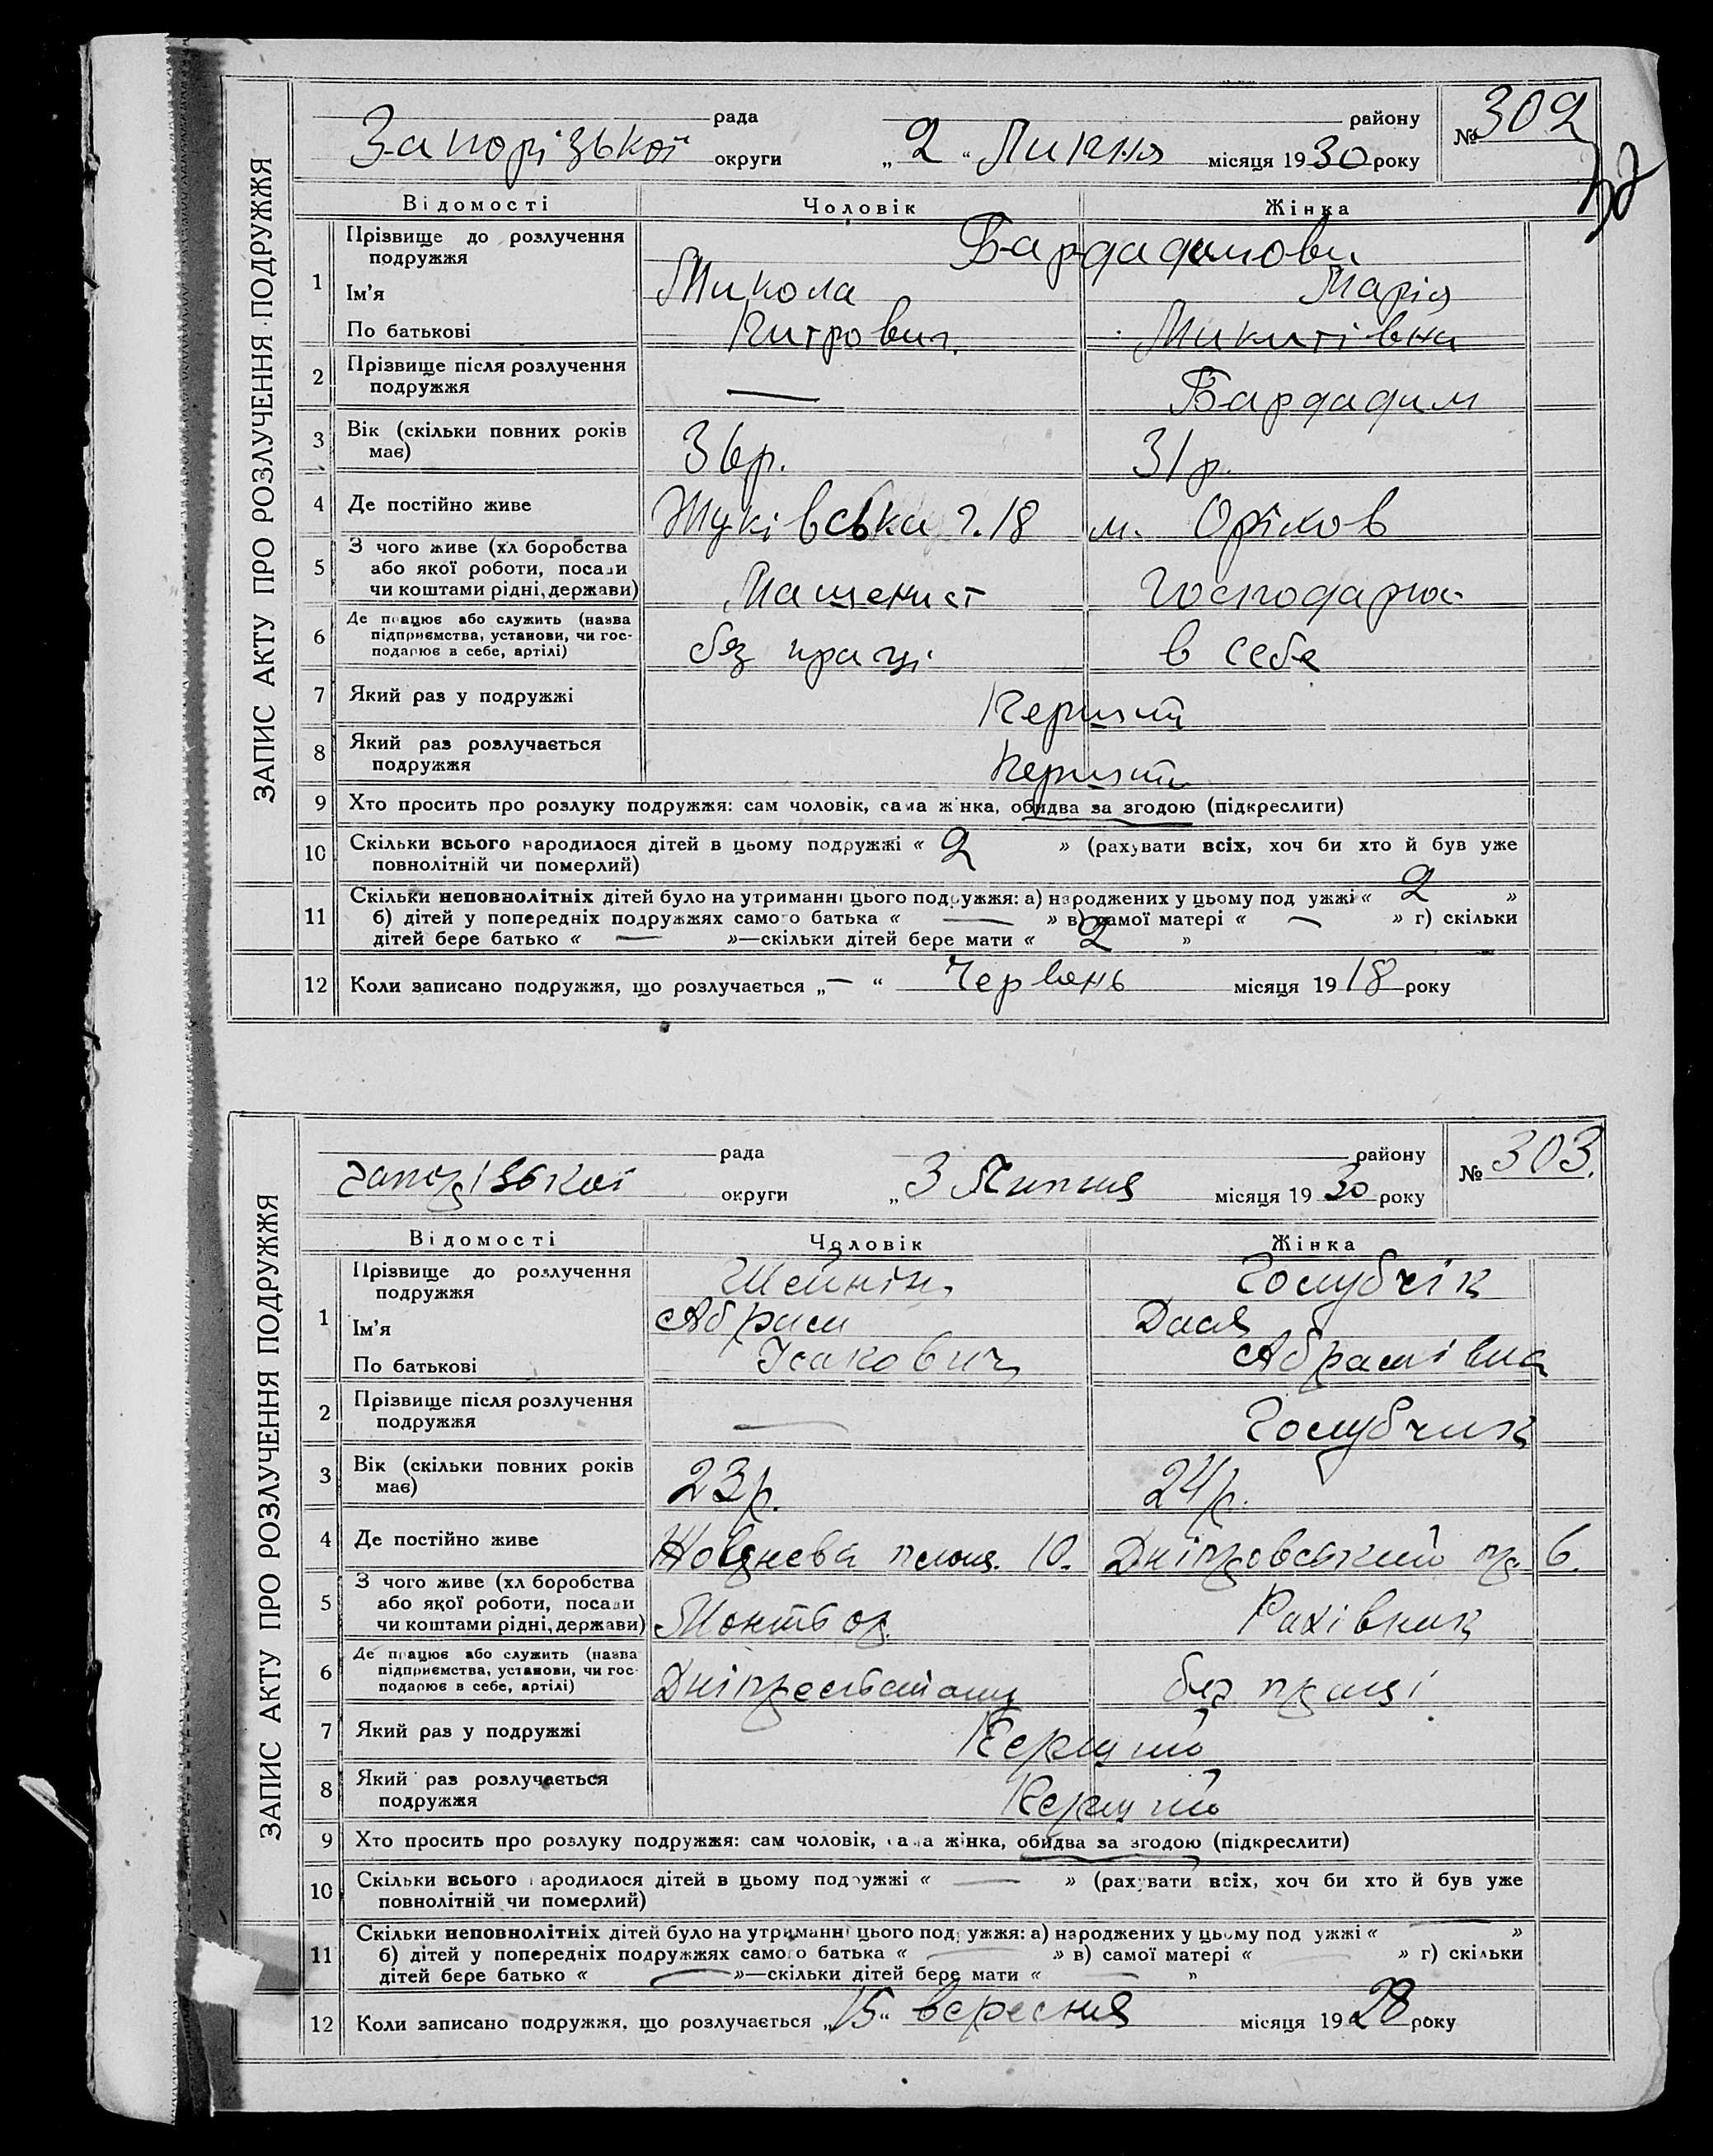 ЗАПИС АКТУ ПРО РОЗЛУЧЕННЯ ПОДРУЖЖЯ
рада району № 302
Запорізької округи „ 2 “ Липня місяця 1930 року
Відомості Чоловік Жінка
1 Прізвище до розлучення подружжя Бардадимови
Ім'я Микола Марія
По батькові Питрович. Микитівна
2 Прізвище після розлучення
подружжя — Бардадим
3 Вік (скільки повних років
має) 36р. 31р.
4 Де постійно живе Жуківська г. 18 м. Оріхов
5 З чого живе (хл боробства
або якої роботи, посади
чи коштами рідні, держави) Машенист Господарює
6 Де працює або служить (назва
підприємства, установи, чи гос-
подарює в себе, артілі) без праці в себе
7 Який раз у подружжі Перший
8 Який раз розлучається
подружжя Перший
9 Хто просить про розлуку подружжя: сам чоловік, сама жінка, обидва за згодою (підкреслити)
10 Скільки всього народилося дітей в цьому подружжі « 2 » (рахувати всіх, хоч би хто й був уже
повнолітній чи померлий)
11 Скільки неповнолітніх дітей було на утриманні цього подружжя: а) народжених у цьому под ужжі « 2 »
б) дітей у попередніх подружжях самого батька « — » в) самої матері « — » г) скільки
дітей бере батько « — »—скільки дітей бере мати « 2 »
12 Коли записано подружжя, що розлучається „ — “ Червень місяця 1918 року
ЗАПИС АКТУ ПРО РОЗЛУЧЕННЯ ПОДРУЖЖЯ
рада району № 303.
Запорізької округи „ 3 Липня місяця 1930 року
Відомості Чоловік Жінка
1 Прізвище до розлучення
подружжя Шейнін Голубчік
Ім'я Абрам
По батькові Ісакович Абрамівна
2 Прізвище після розлучення
подружжя — Голубчик
3 Вік (скільки повних років
має) 23р. 24р.
4 Де постійно живе Жовднева площ. 10. Дніпровський пр 6.
5 З чого живе (хл боробства
або якої роботи, посади
чи коштами рідні, держави) Монтьор Рахівник
6 Де працює або служить (назва
підприємства, установи, чи гос-
подарює в себе, артілі) без праці
7 Який раз у подружжі Перший
8 Який раз розлучається
подружжя Перший
9 Хто просить про розлуку подружжя: сам чоловік, сама жінка, обидва за згодою (підкреслити)
10 Скільки всього народилося дітей в цьому подружжі « — » (рахувати всіх, хоч би хто й був уже
повнолітній чи померлий)
11 Скільки неповнолітніх дітей було на утриманні цього подружжя: а) народжених у цьому под ужжі « — »
б) дітей у попередніх подружжях самого батька « — » в) самої матері « » г) скільки
дітей бере батько « — »—скільки дітей бере мати « — »
12 Коли записано подружжя, що розлучається „15“ вересня місяця 1928 року